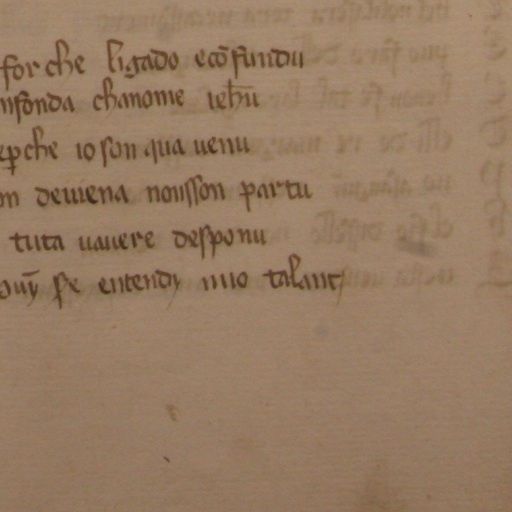 for che ligado ecōfundu
nfonda chanome iehū
eꝑche io son qua uenu
on deuiena nonsson partu
tuta uauere desponu
se entendy mio talant